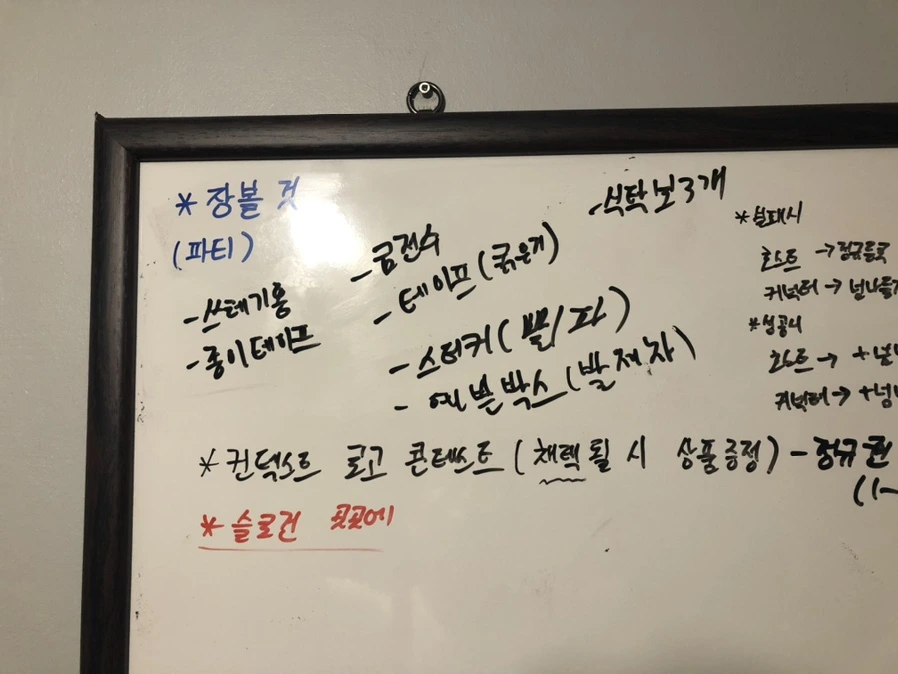 * 장볼 것
(파티)
- 쓰레기통
- 종이테이프
- 금전수
- 테이프(굵은거)
- 스티커(빨/파)
- 예쁜박스(발제자)
- 식탁보 3개
* 실패시
호스트 →
커넥터 →
* 성공시
호스트 → +
커넥터 → +
* 컨텍스트 로고 콘테스트 (채택될 시 상품증정) - 정규권
(1~
* 슬로건 곳곳에